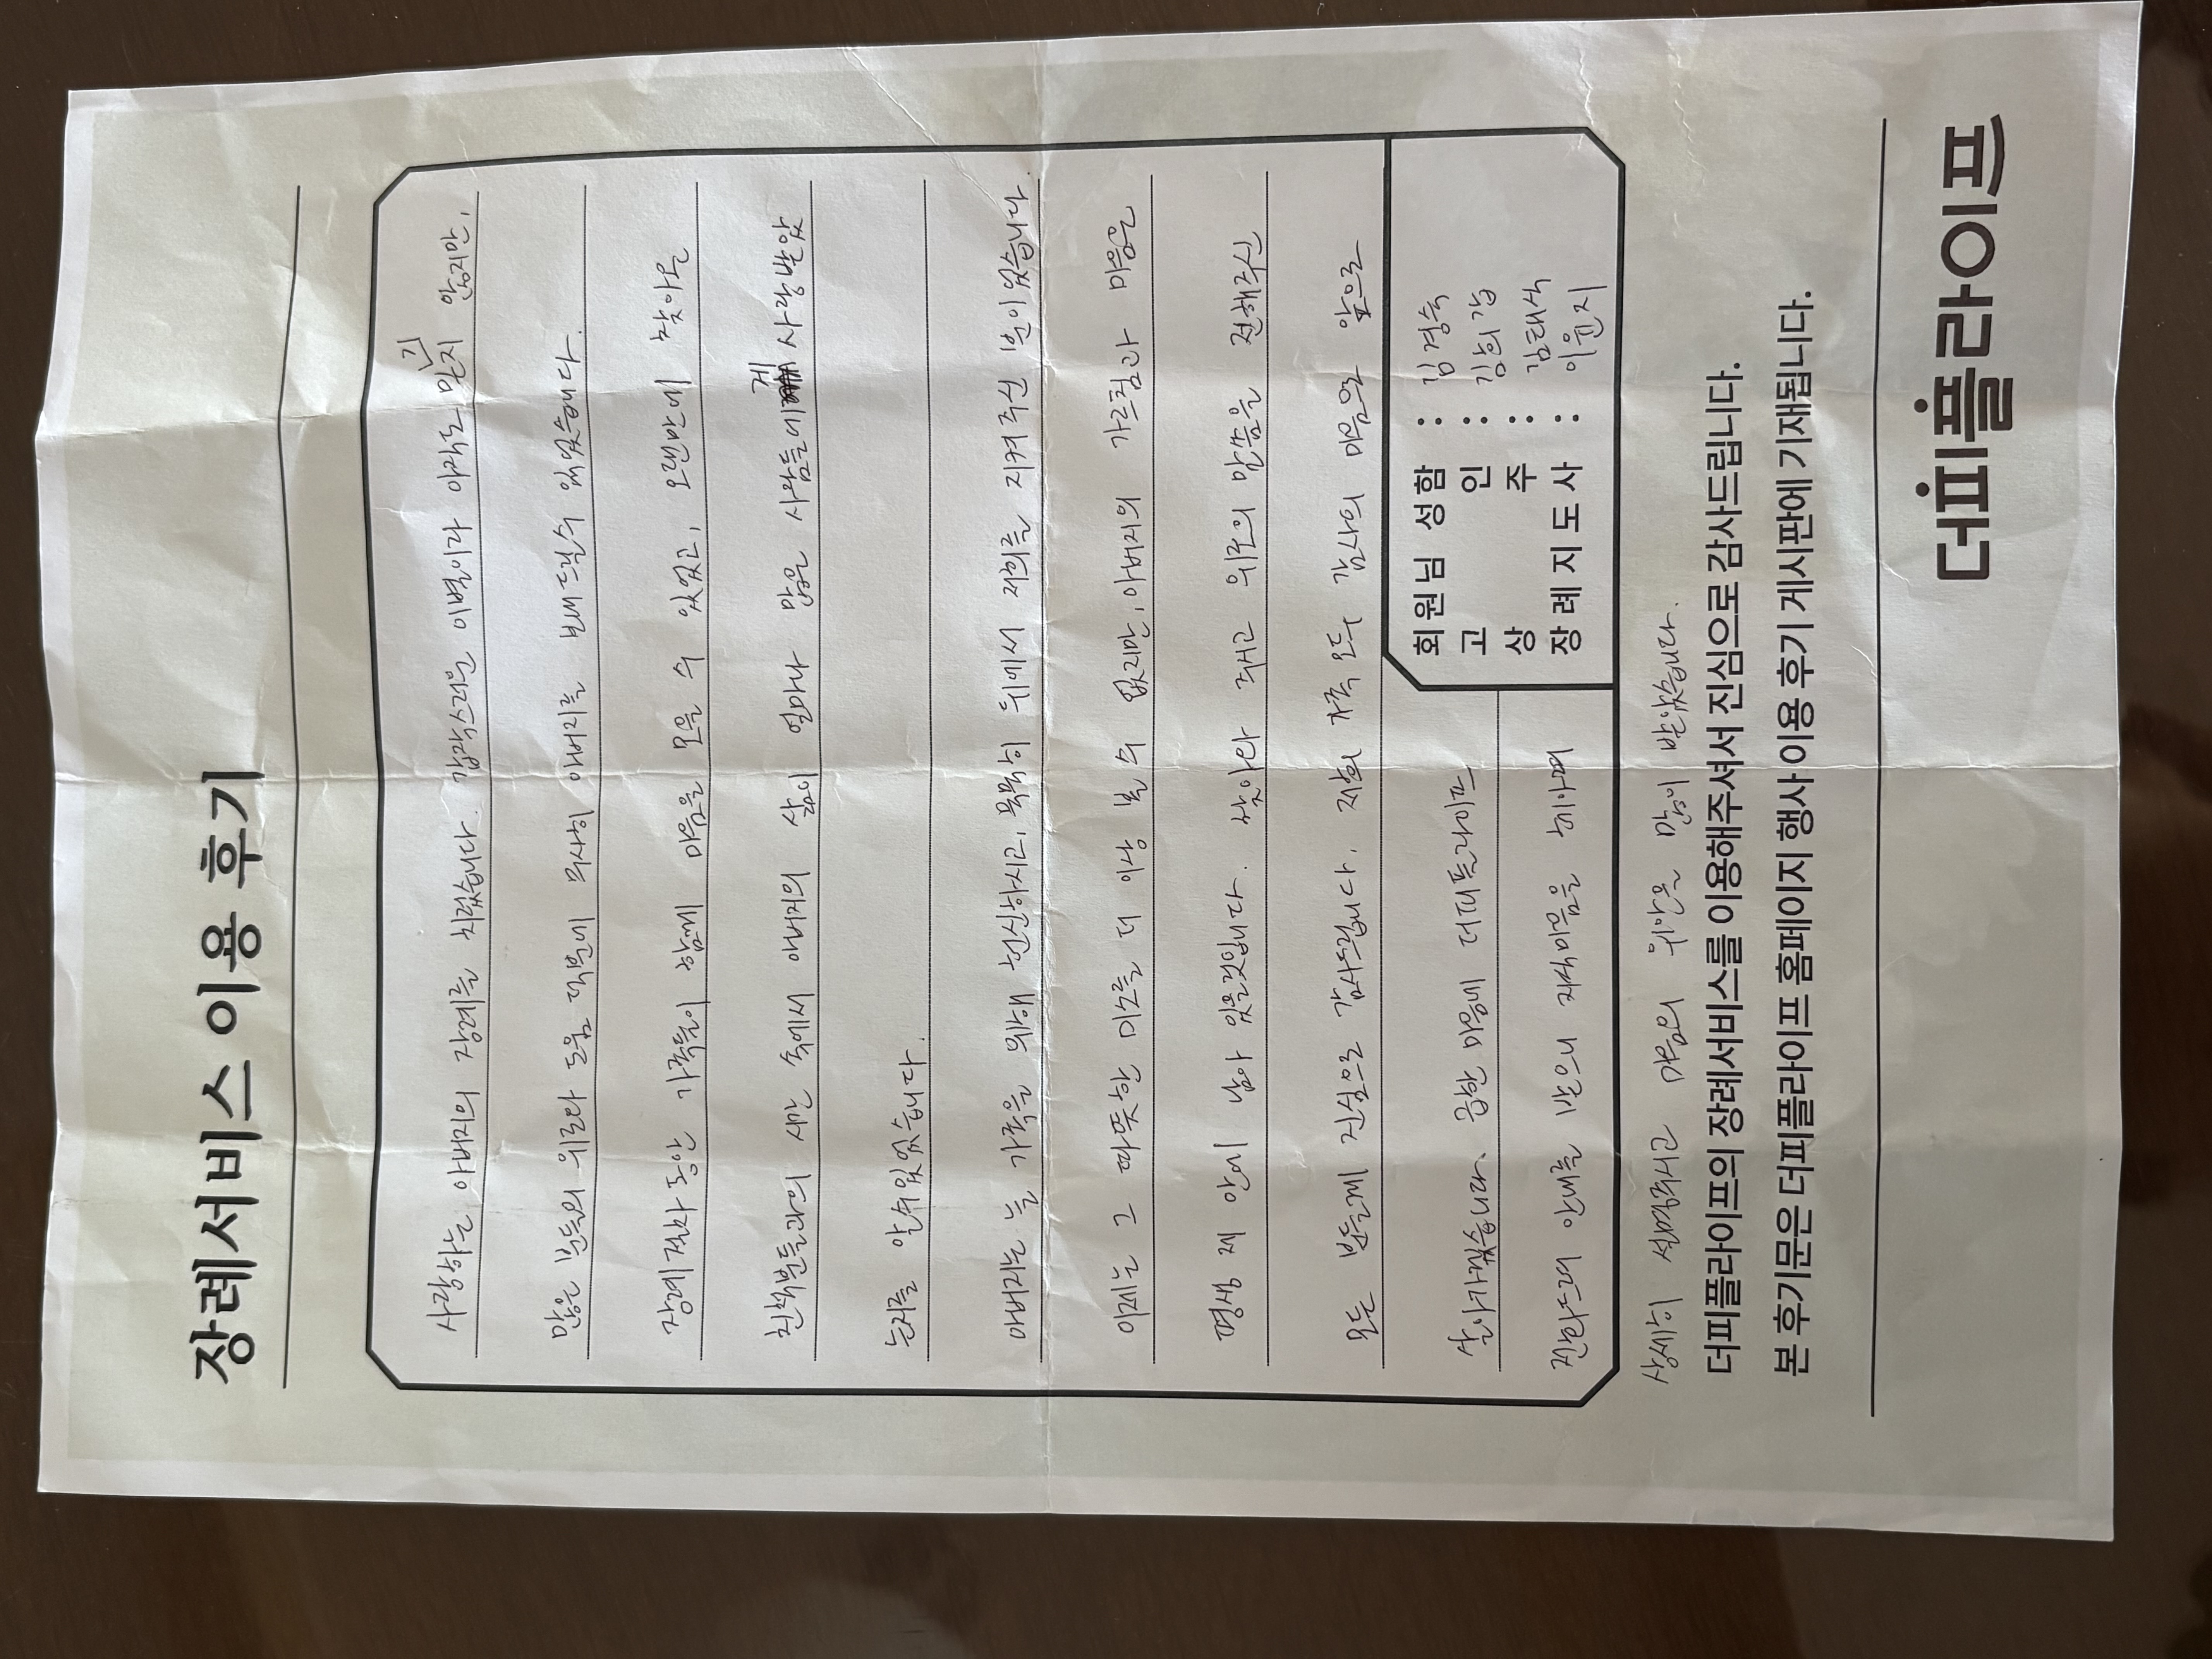 장례서비스 이용 후기
사랑하는 아버지의 장례를 치렀습니다. 갑작스러운 이별이라 아직도 믿기지 않지만,
많은 분들의 위로와 도움 덕분에 무사히 아버지를 보내드릴수 있었습니다.
장례절차 동안 가족들이 함께 마음을 모을 수 있었고, 오랜만에 찾아온
친척분들과의 시간 속에서 아버지의 삶이 얼마나 많은 사람들에게 사랑받았
는지를 알수있었습니다.
아버지는 늘 가족을 위해 헌신하시고, 묵묵히 뒤에서 저희를 지켜주신 분이었습니다
이제는 그 따뜻한 미소를 더 이상 볼 수 없지만, 아버지의 가르침과 마음은
평생 제 안에 남아 있을것입니다. 찾아와 주시고 위로의 말씀을 전해주신
모든 분들께 진심으로 감사드립니다. 저희 가족 모두 감사의 마음으로 앞으로
살아가겠습니다. 급한 마음에 더피플라이프
전화드려 안내를 받으니 자식마음을 헤아려
상세히 설명주시고 마음의 위안을 많이 받았습니다.
회원님 성함 : 김경숙
고 인 : 김희갑
상 주 : 김태식
장례지도사 : 이윤지
더피플라이프의 장례서비스를 이용해주셔서 진심으로 감사드립니다.
본 후기문은 더피플라이프 홈페이지 행사 이용 후기 게시판에 기재됩니다.
더피플라이프